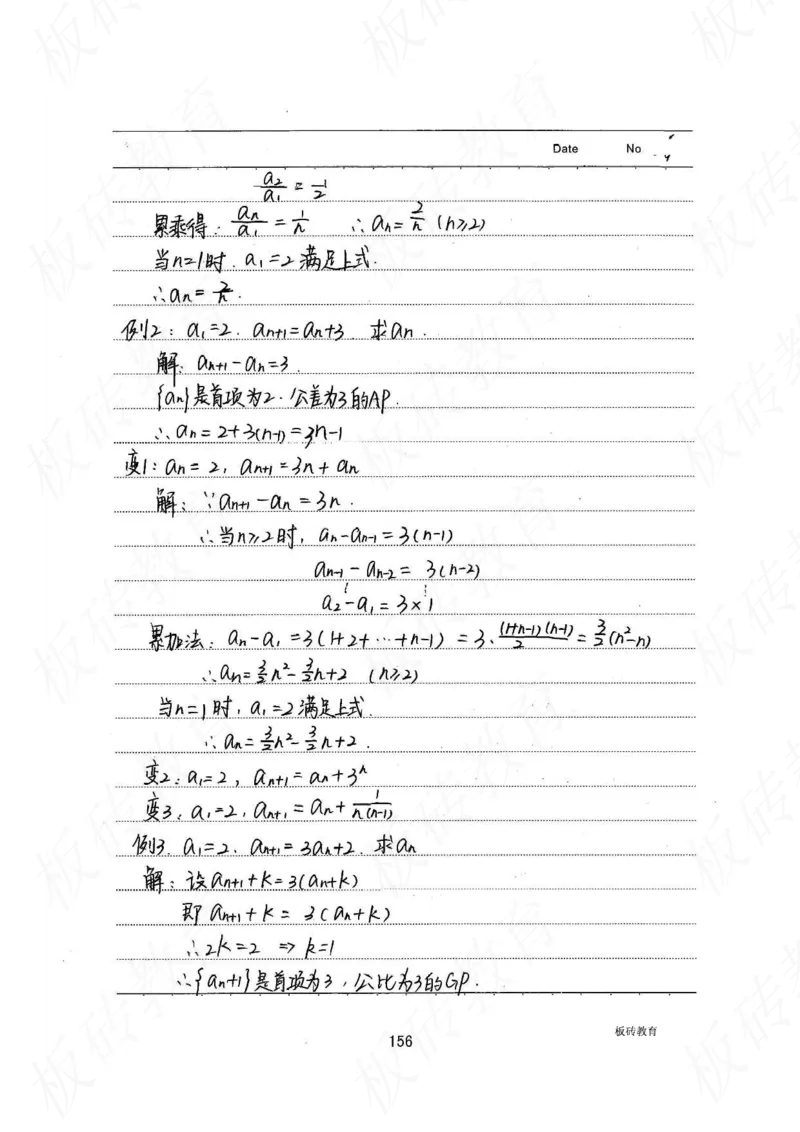 Date No
a₂/a₁ = 1/2
累乘得: aₙ/a₁ = 1/n ∴ aₙ = 2/n (n≥2)
当n=1时. a₁=2满足上式.
∴aₙ = 2/n.
例2: a₁=2. aₙ₊₁=aₙ+3. 求aₙ.
解: aₙ₊₁-aₙ=3.
{aₙ}是首项为2.公差为3的AP.
∴aₙ=2+3(n-1)=3n-1
变1: aₙ=2, aₙ₊₁=3n+aₙ
解: ∵aₙ₊₁-aₙ=3n.
∴当n≥2时, aₙ-aₙ₋₁=3(n-1)
aₙ₋₁-aₙ₋₂= 3(n-2)
⋮ ⋮
a₂-a₁=3×1
累加法: aₙ-a₁=3(1+2+…+n-1) =3·(1+n-1)(n-1)/2=3/2(n²-n)
∴aₙ=3/2n²-3/2n+2 (n≥2)
当n=1时, a₁=2满足上式.
∴aₙ=3/2n²-3/2n+2.
变2: a₁=2, aₙ₊₁=aₙ+3ⁿ
变3: a₁=2, aₙ₊₁=aₙ+1/n(n-1)
例3. a₁=2. aₙ₊₁=3aₙ+2. 求aₙ
解: 设aₙ₊₁+k=3(aₙ+k)
即 aₙ₊₁+k= 3(aₙ+k)
∴2k=2 ⇒ k=1
∴{aₙ+1}是首项为3,公比为3的GP.
板砖教育
156